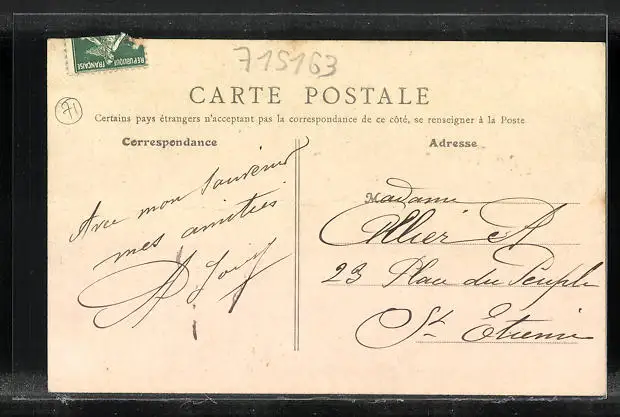 REPUBLIQUE FRANÇAISE
715163
71
CARTE POSTALE
Certains pays étrangers n'acceptant pas la correspondance de ce côté, se renseigner à la Poste
Correspondance
Adresse
Avec mon souvenir
mes amitiés
A
Madame
Allier A
23 Place du Peuple
St Etienne